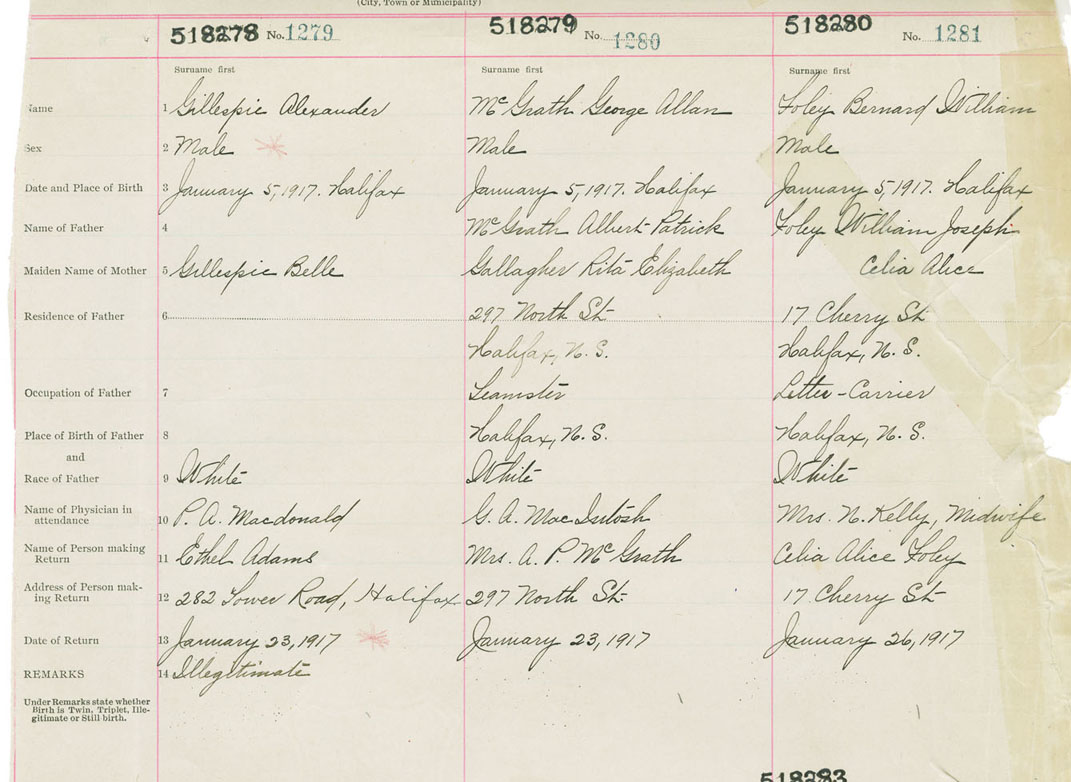 (City, Town or Municipality)
518278 No. 1279 518279 No. 1280 518280 No. 1281
Surname first Surname first Surname first
Name 1 Gillespie Alexander McGrath George Allan Foley Bernard William
Sex 2 Male Male Male
Date and Place of Birth 3 January 5, 1917. Halifax January 5, 1917. Halifax January 5, 1917. Halifax
Name of Father 4 McGrath Albert Patrick Foley William Joseph
Maiden Name of Mother 5 Gillespie Belle Gallagher Rita Elizabeth Celia Alice
Residence of Father 6 297 North St. 17 Cherry St.
Halifax, N.S. Halifax, N.S.
Occupation of Father 7 Teamster Letter-Carrier
Place of Birth of Father 8 Halifax, N.S. Halifax, N.S.
and
Race of Father 9 White White White
Name of Physician in
attendance 10 P. A. Macdonald G. A. MacIntosh Mrs. N. Kelly, Midwife
Name of Person making
Return 11 Ethel Adams Mrs. A. P. McGrath Celia Alice Foley
Address of Person mak-
ing Return 12 282 Tower Road, Halifax 297 North St. 17 Cherry St.
Date of Return 13 January 23, 1917 January 23, 1917 January 26, 1917
REMARKS 14 Illegitimate
Under Remarks state whether
Birth is Twin, Triplet, Ille-
gitimate or Still birth.
518283